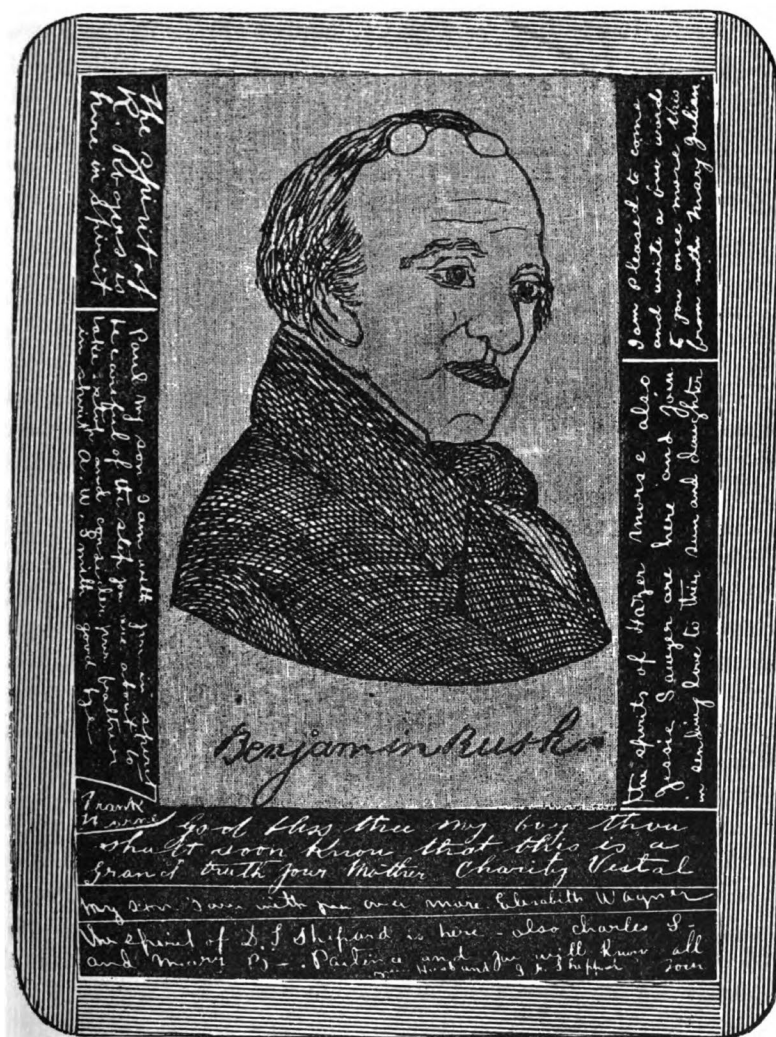 The spirit of
K. Rogers is
here in Spirit
Paul my son I am with you in spirit
be careful of the step you are about to
take stop and consider my partner
in spirit A. W. Smith good bye
I am pleased to come
and write a few words
to you once more this
from with Mary Julian.
the spirits of Hozer Morse also
Jessie Sawyer are here and Join
in sending love to their son and daughter
Benjamin Rush
Frank
God bless thee my boy thou
shalt soon know that this is a
Grand truth your Mother Charity Vestal
My Son I am with you once more Elizabith Wagner
the spirit of D. S Shipard is here - also charles S-
and B - Patience and you will know all
Husband